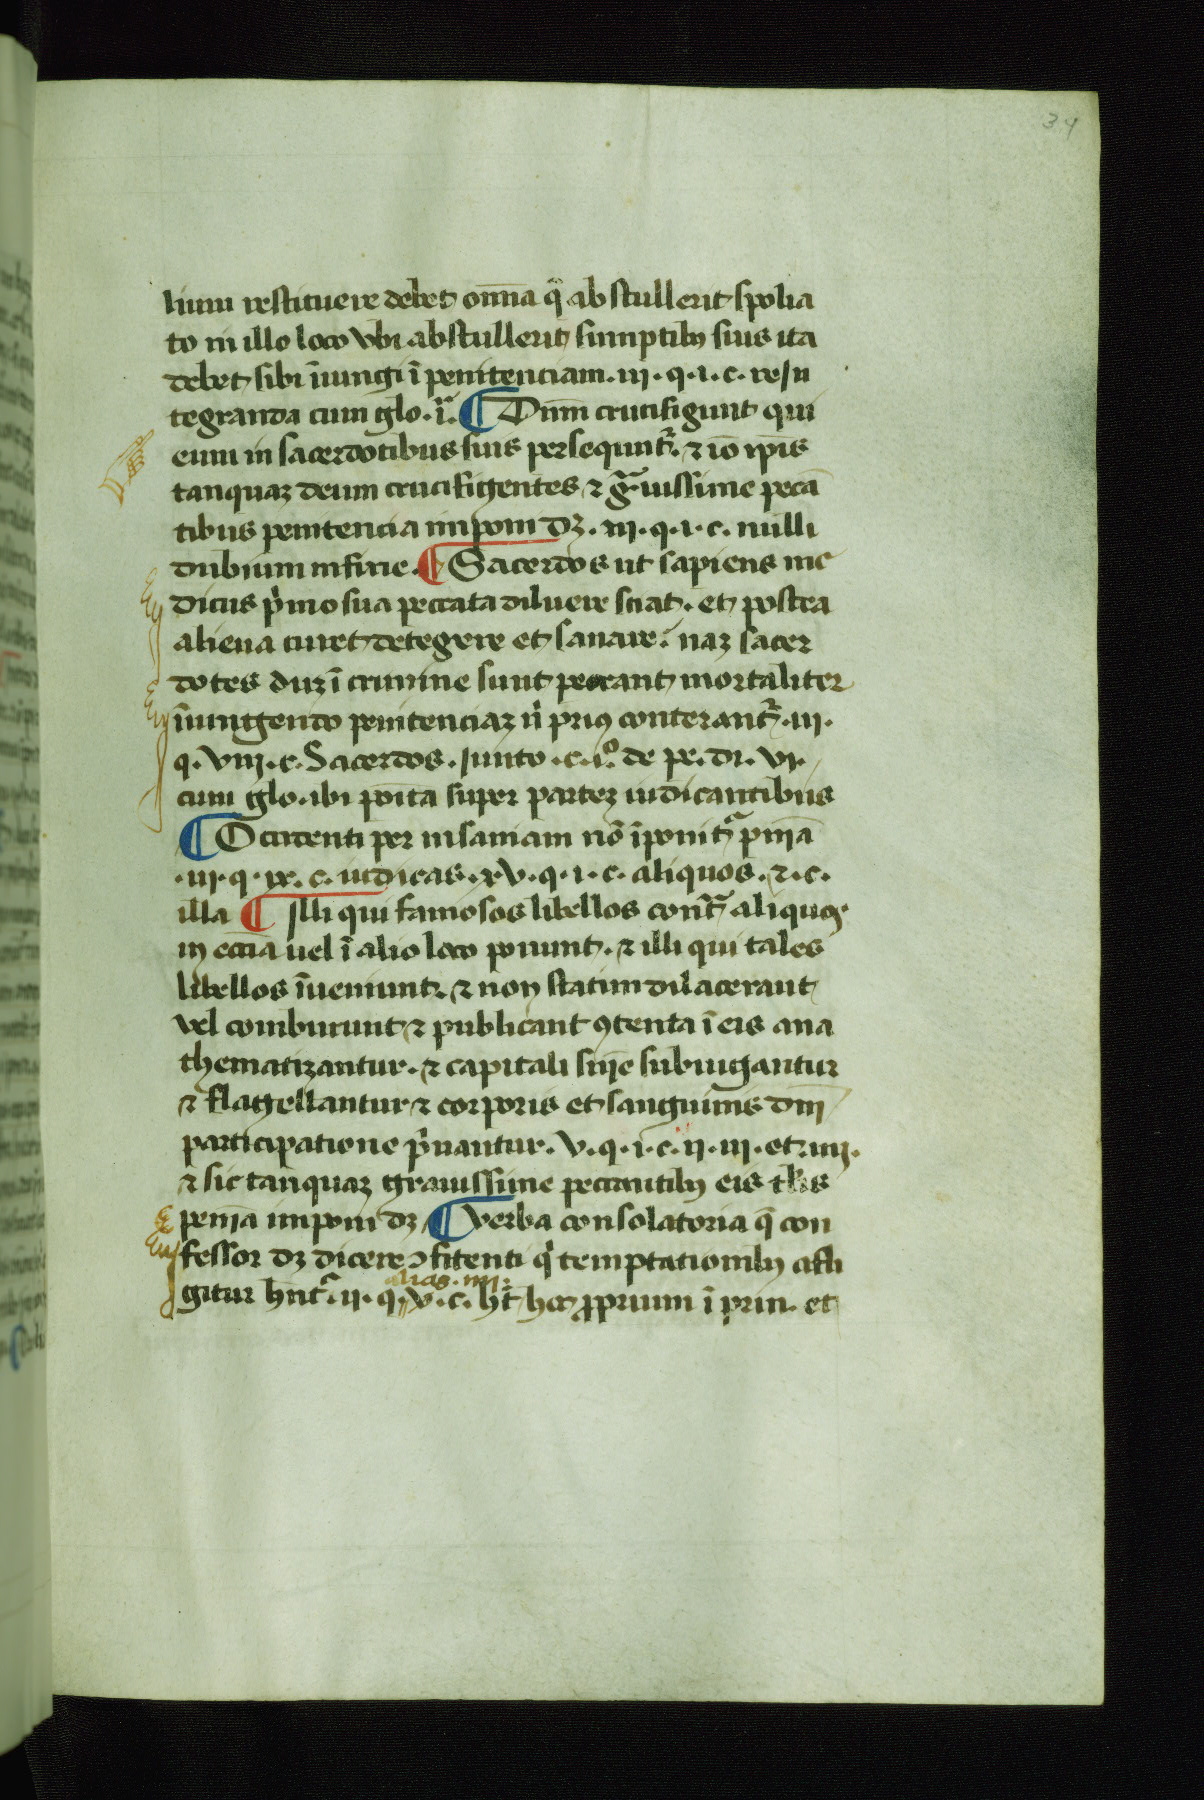 34
lium restituere debet om̄ia q̄ abstullerit spolia
to in illo loco vbi abstullerit sumptibꝫ suis ita
debet sibi īiungi ī penitenciam. iii. q. i. c. rein
tegranda cum glo. ¶ Dn̄m crucifigunt qui
eum in sacerdotibus suis persequunt᷑. ⁊ iō
tanquaꝫ deum crucifigentes ⁊ g̃uissime peccā
tibus penitencia imponi dꝫ. iii. q. i. c. nulli
dubium ¶ Sacerdos ut sapiens me
dicus p̍mo sua peccata diluere sciat. et postea
aliena curet detegere et sanare. naꝫ sacer
dotes duꝫ ī crimine sunt peccant mortaliter
īiungendo penitenciaꝫ ni prius conterant᷑. iii.
q. viii. c. Sacerdos. iuncto .c. i.º de pe. di. vi.
cum glo. ibi poīta super parteꝫ iudicantibus
¶ Occidenti per insaniam nō īponit᷑ pn̄iā
.iii. q. ix. c. iudicas. xv. q. i. c. aliquos. ⁊ .c.
illa ¶ Illi qui famosos libellos cont̃ aliquos
in ecc̄ia uel ī alio loco ponunt. ⁊ illi qui tales
libellos īueniunt. ⁊ non statim dilacerant
vel comburunt ⁊ publicant ꝯtenta ī eis ana
thematizantur. ⁊ capitali sn̄ie subiugantur
⁊ flagellantur ⁊ corporis et sanguinis dn̄i
participatione p̍uantur. v. q. i. c. ii. iii. et. iiii.
⁊ sic tanquaꝫ grauissime peccantibꝫ eis
pen̄ia imponi dꝫ ¶ Verba consolatoria q̄ con
fessor dꝫ dicere ꝯfitenti q̍ temptationibꝫ afli
alias. iiii.
gitur hn̄t᷑. ii. q. v. c. hꝫ hoc ꝓprium ī prin. et